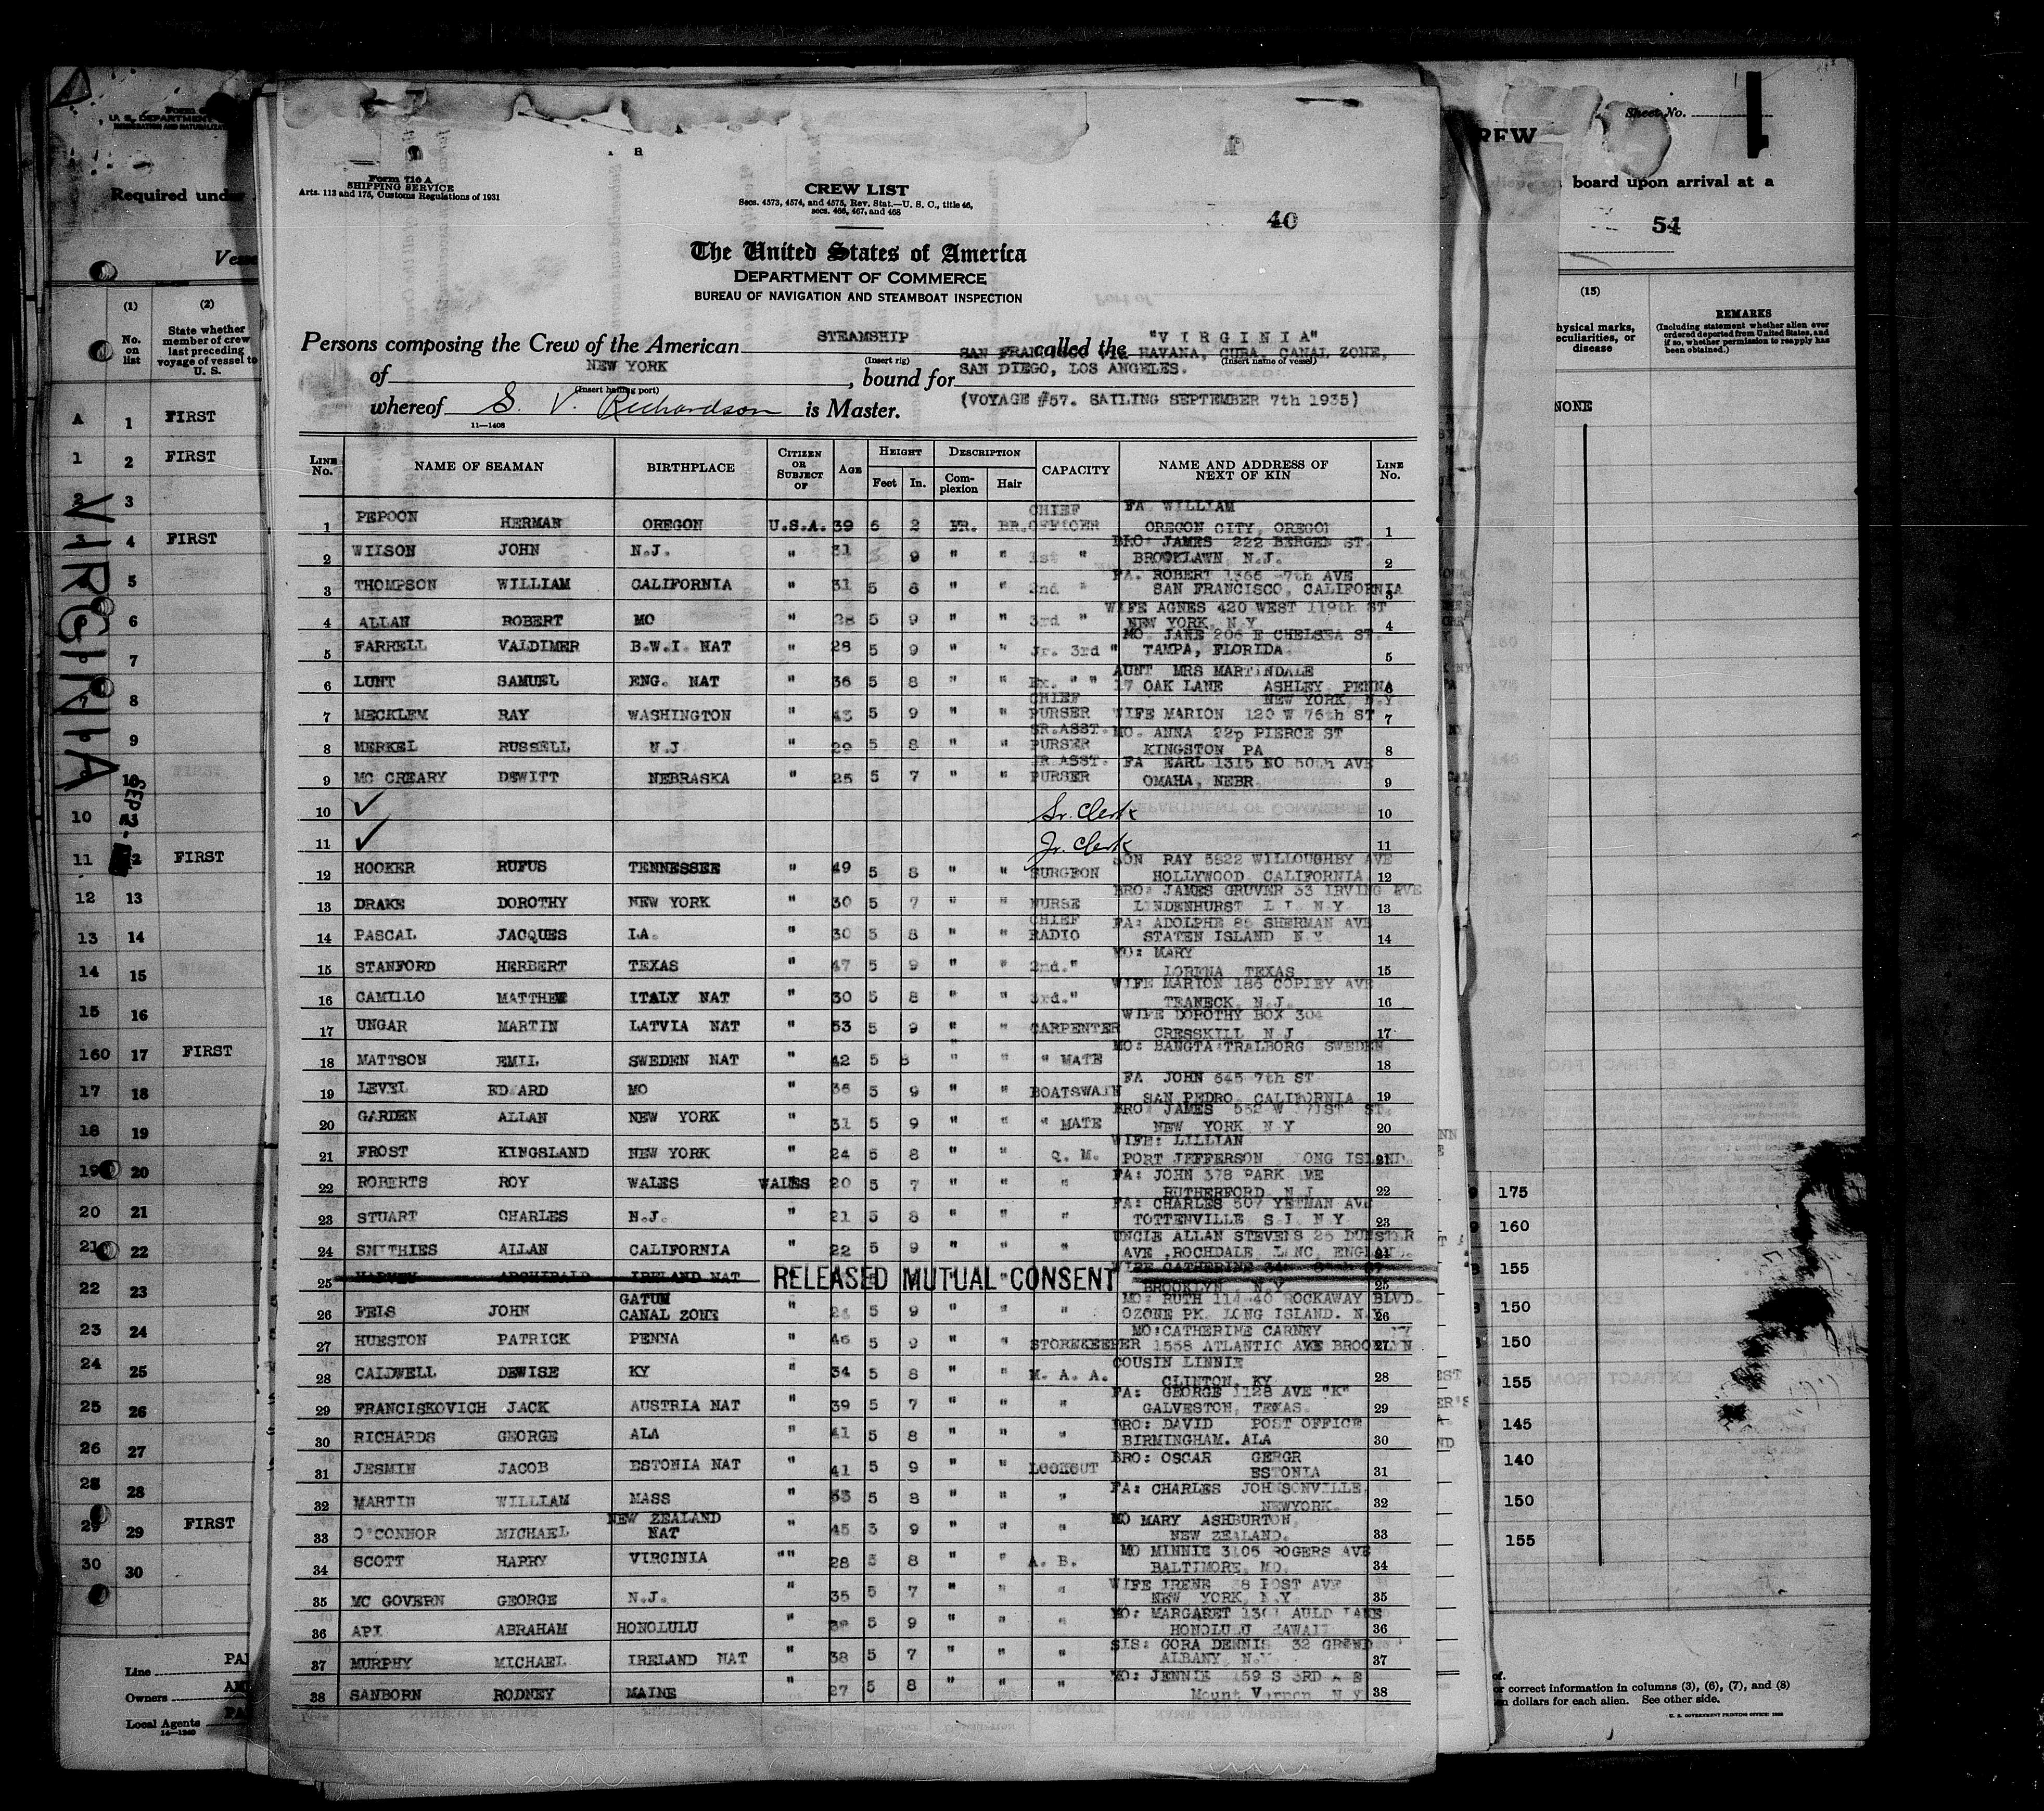 Form 710 A
SHIPPING SERVICE
Arts. 113 and 175, Customs Regulations of 1931
CREW LIST
Secs. 4573, 4574, and 4575, Rev. Stat.—U. S. C., title 46,
secs. 466, 467, and 468
40
The United States of America
DEPARTMENT OF COMMERCE
BUREAU OF NAVIGATION AND STEAMBOAT INSPECTION
Persons composing the Crew of the American STEAMSHIP called the "VIRGINIA"
(Insert rig) (Insert name of vessel)
of NEW YORK, bound for SAN FRANCISCO VIA HAVANA, CUBA, CANAL ZONE,
SAN DIEGO, LOS ANGELES.
(Insert hailing port)
whereof S. V. Richardson is Master. (VOYAGE #57. SAILING SEPTEMBER 7th 1935)
11—1408
LINE No. NAME OF SEAMAN BIRTHPLACE CITIZEN OR SUBJECT OF AGE HEIGHT Feet In. DESCRIPTION Complexion Hair CAPACITY NAME AND ADDRESS OF NEXT OF KIN LINE No.
1 PEPOON HERMAN OREGON U.S.A. 39 6 2 FR. BR. CHIEF OFFICER FA WILLIAM OREGON CITY, OREGON 1
2 WILSON JOHN N.J. " 31 9 " " 1st " BRO: JAMES 222 BERGEN ST. BROOKLAWN, N.J. 2
3 THOMPSON WILLIAM CALIFORNIA " 31 5 8 " " 2nd " FA. ROBERT 1366 -7th AVE SAN FRANCISCO, CALIFORNIA 3
4 ALLAN ROBERT MO " 28 5 9 " " 3rd " WIFE AGNES 420 WEST 119th ST NEW YORK, N.Y 4
5 FARRELL VALDIMER B.W.I. NAT " 28 5 9 " " Jr. 3rd " MO. JANE 206 E CHELSEA ST. TAMPA, FLORIDA 5
6 LUNT SAMUEL ENG. NAT " 36 5 8 " " Ex. " " AUNT MRS MARTINDALE 17 OAK LANE ASHLEY, PENNA 6
7 MECKLEM RAY WASHINGTON " 43 5 9 " " CHIEF PURSER WIFE MARION 120 W 76th ST NEW YORK, N.Y 7
8 MERKEL RUSSELL N.J " 29 5 8 " " SR.ASST. PURSER MO. ANNA 22p PIERCE ST KINGSTON PA 8
9 MC CREARY DEWITT NEBRASKA " 25 5 7 " " JR ASST. PURSER FA EARL 1315 NO 50th AVE OMAHA, NEBR. 9
10 ✓ Sr. Clerk 10
11 ✓ Jr. Clerk 11
12 HOOKER RUFUS TENNESSEE " 49 5 8 " " SURGEON SON RAY 5822 WILLOUGHBY AVE HOLLYWOOD CALIFORNIA 12
13 DRAKE DOROTHY NEW YORK " 30 5 7 " " NURSE BRO: JAMES GRUVER 33 IRVING AVE LINDENHURST L.I. N.Y. 13
14 PASCAL JACQUES LA. " 30 5 8 " " CHIEF RADIO FA: ADOLPHE 85 SHERMAN AVE STATEN ISLAND N.Y 14
15 STANFORD HERBERT TEXAS " 47 5 9 " " 2nd." MO: MARY LORENA TEXAS 15
16 CAMILLO MATTHEW ITALY NAT " 30 5 8 " " 3rd." WIFE MARION 186 COPLEY AVE TEANECK, N.J. 16
17 UNGAR MARTIN LATVIA NAT " 53 5 9 " " CARPENTER WIFE DOROTHY BOX 304 CRESSKILL N J 17
18 MATTSON EMIL SWEDEN NAT " 42 5 8 " " " MATE MO: BANGTA TRALBORG SWEDEN 18
19 LEVEL EDWARD MO " 36 5 9 " " BOATSWAIN FA JOHN 645 7th ST SAN PEDRO, CALIFORNIA 19
20 GARDEN ALLAN NEW YORK " 31 5 9 " " " MATE BRO: JAMES 552 W 171ST ST. NEW YORK N Y 20
21 FROST KINGSLAND NEW YORK " 24 5 8 " " Q. M. WIFE: LILLIAN PORT JEFFERSON LONG ISLAND. 21
22 ROBERTS ROY WALES WALES 20 5 7 " " " FA: JOHN 378 PARK AVE RUTHERFORD N J 22
23 STUART CHARLES N.J. " 21 5 8 " " " FA: CHARLES 507 YETMAN AVE TOTTENVILLE S.I. N Y 23
24 SMITHIES ALLAN CALIFORNIA " 22 5 9 " " " UNCLE ALLAN STEVENS 25 DUNSTER AVE, ROCHDALE LANC, ENGLAND. 24
25 HARVEY ARCHIBALD IRELAND NAT RELEASED MUTUAL CONSENT WIFE CATHERINE BROOKLYN, N.Y 25
26 FEIS JOHN GATUN CANAL ZONE " 5 9 " " " MO: RUTH 114-40 ROCKAWAY BLVD. OZONE PK. LONG ISLAND. N.Y. 26
27 HUESTON PATRICK PENNA " 46 5 9 " " STOREKEEPER MO:CATHERINE CARNEY 1558 ATLANTIC AVE BROOKLYN NY 27
28 CALDWELL DEWISE KY " 34 5 8 " " M. A. A. COUSIN LINNIE CLINTON, KY 28
29 FRANCISKOVICH JACK AUSTRIA NAT " 39 5 7 " " " FA: GEORGE 1128 AVE "K" GALVESTON, TEXAS. 29
30 RICHARDS GEORGE ALA " 41 5 8 " " " BRO: DAVID POST OFFICE BIRMINGHAM. ALA 30
31 JESMIN JACOB ESTONIA NAT " 41 5 9 " " LOOKOUT BRO: OSCAR GERGR ESTONIA 31
32 MARTIN WILLIAM MASS " 53 5 8 " " " FA: CHARLES JOHNSONVILLE, NEWYORK. 32
33 O'CONNOR MICHAEL NEW ZEALAND NAT " 45 5 9 " " " MO MARY ASHBURTON, NEW ZEALAND. 33
34 SCOTT HARRY VIRGINIA "" 28 5 8 " " A. B. MO MINNIE 3105 ROGERS AVE BALTIMORE, MD. 34
35 MC GOVERN GEORGE N.J. " 35 5 7 " " " WIFE IRENE 38 POST AVE NEW YORK, N.Y 35
36 API ABRAHAM HONOLULU " 5 9 " " " MO: MARGARET AULD LANE HONOLULU HAWAII 36
37 MURPHY MICHAEL IRELAND NAT " 38 5 7 " " " SIS: CORA DENNIS 32 GRAND ALBANY, N.Y. 37
38 SANBORN RODNEY MAINE " 27 5 8 " " " MO: JENNIE 159 S 3RD AVE Mount Vernon N Y 38
Required under
VIRGINIA
(1) (2)
No. on list
State whether member of crew last preceding voyage of vessel to U. S.
A 1 FIRST
1 2 FIRST
2 3
3 4 FIRST
5
6
7
8
9
10
10
11 12 FIRST
12 13
13 14
14 15
15 16
160 17 FIRST
17 18
18 19
19 20
20 21
21 22
22 23
23 24
24 25
25 26
26 27
28 28
29 29 FIRST
30 30
Line
Owners
Local Agents
16—1240
Sheet No.
1
board upon arrival at a
54
(15)
physical marks, peculiarities, or disease
REMARKS
(Including statement whether alien ever ordered deported from United States, and if so, whether permission to reapply has been obtained.)
NONE
175
160
155
150
150
155
145
140
150
155
or correct information in columns (3), (6), (7), and (8)
dollars for each alien. See other side.
U. S. GOVERNMENT PRINTING OFFICE